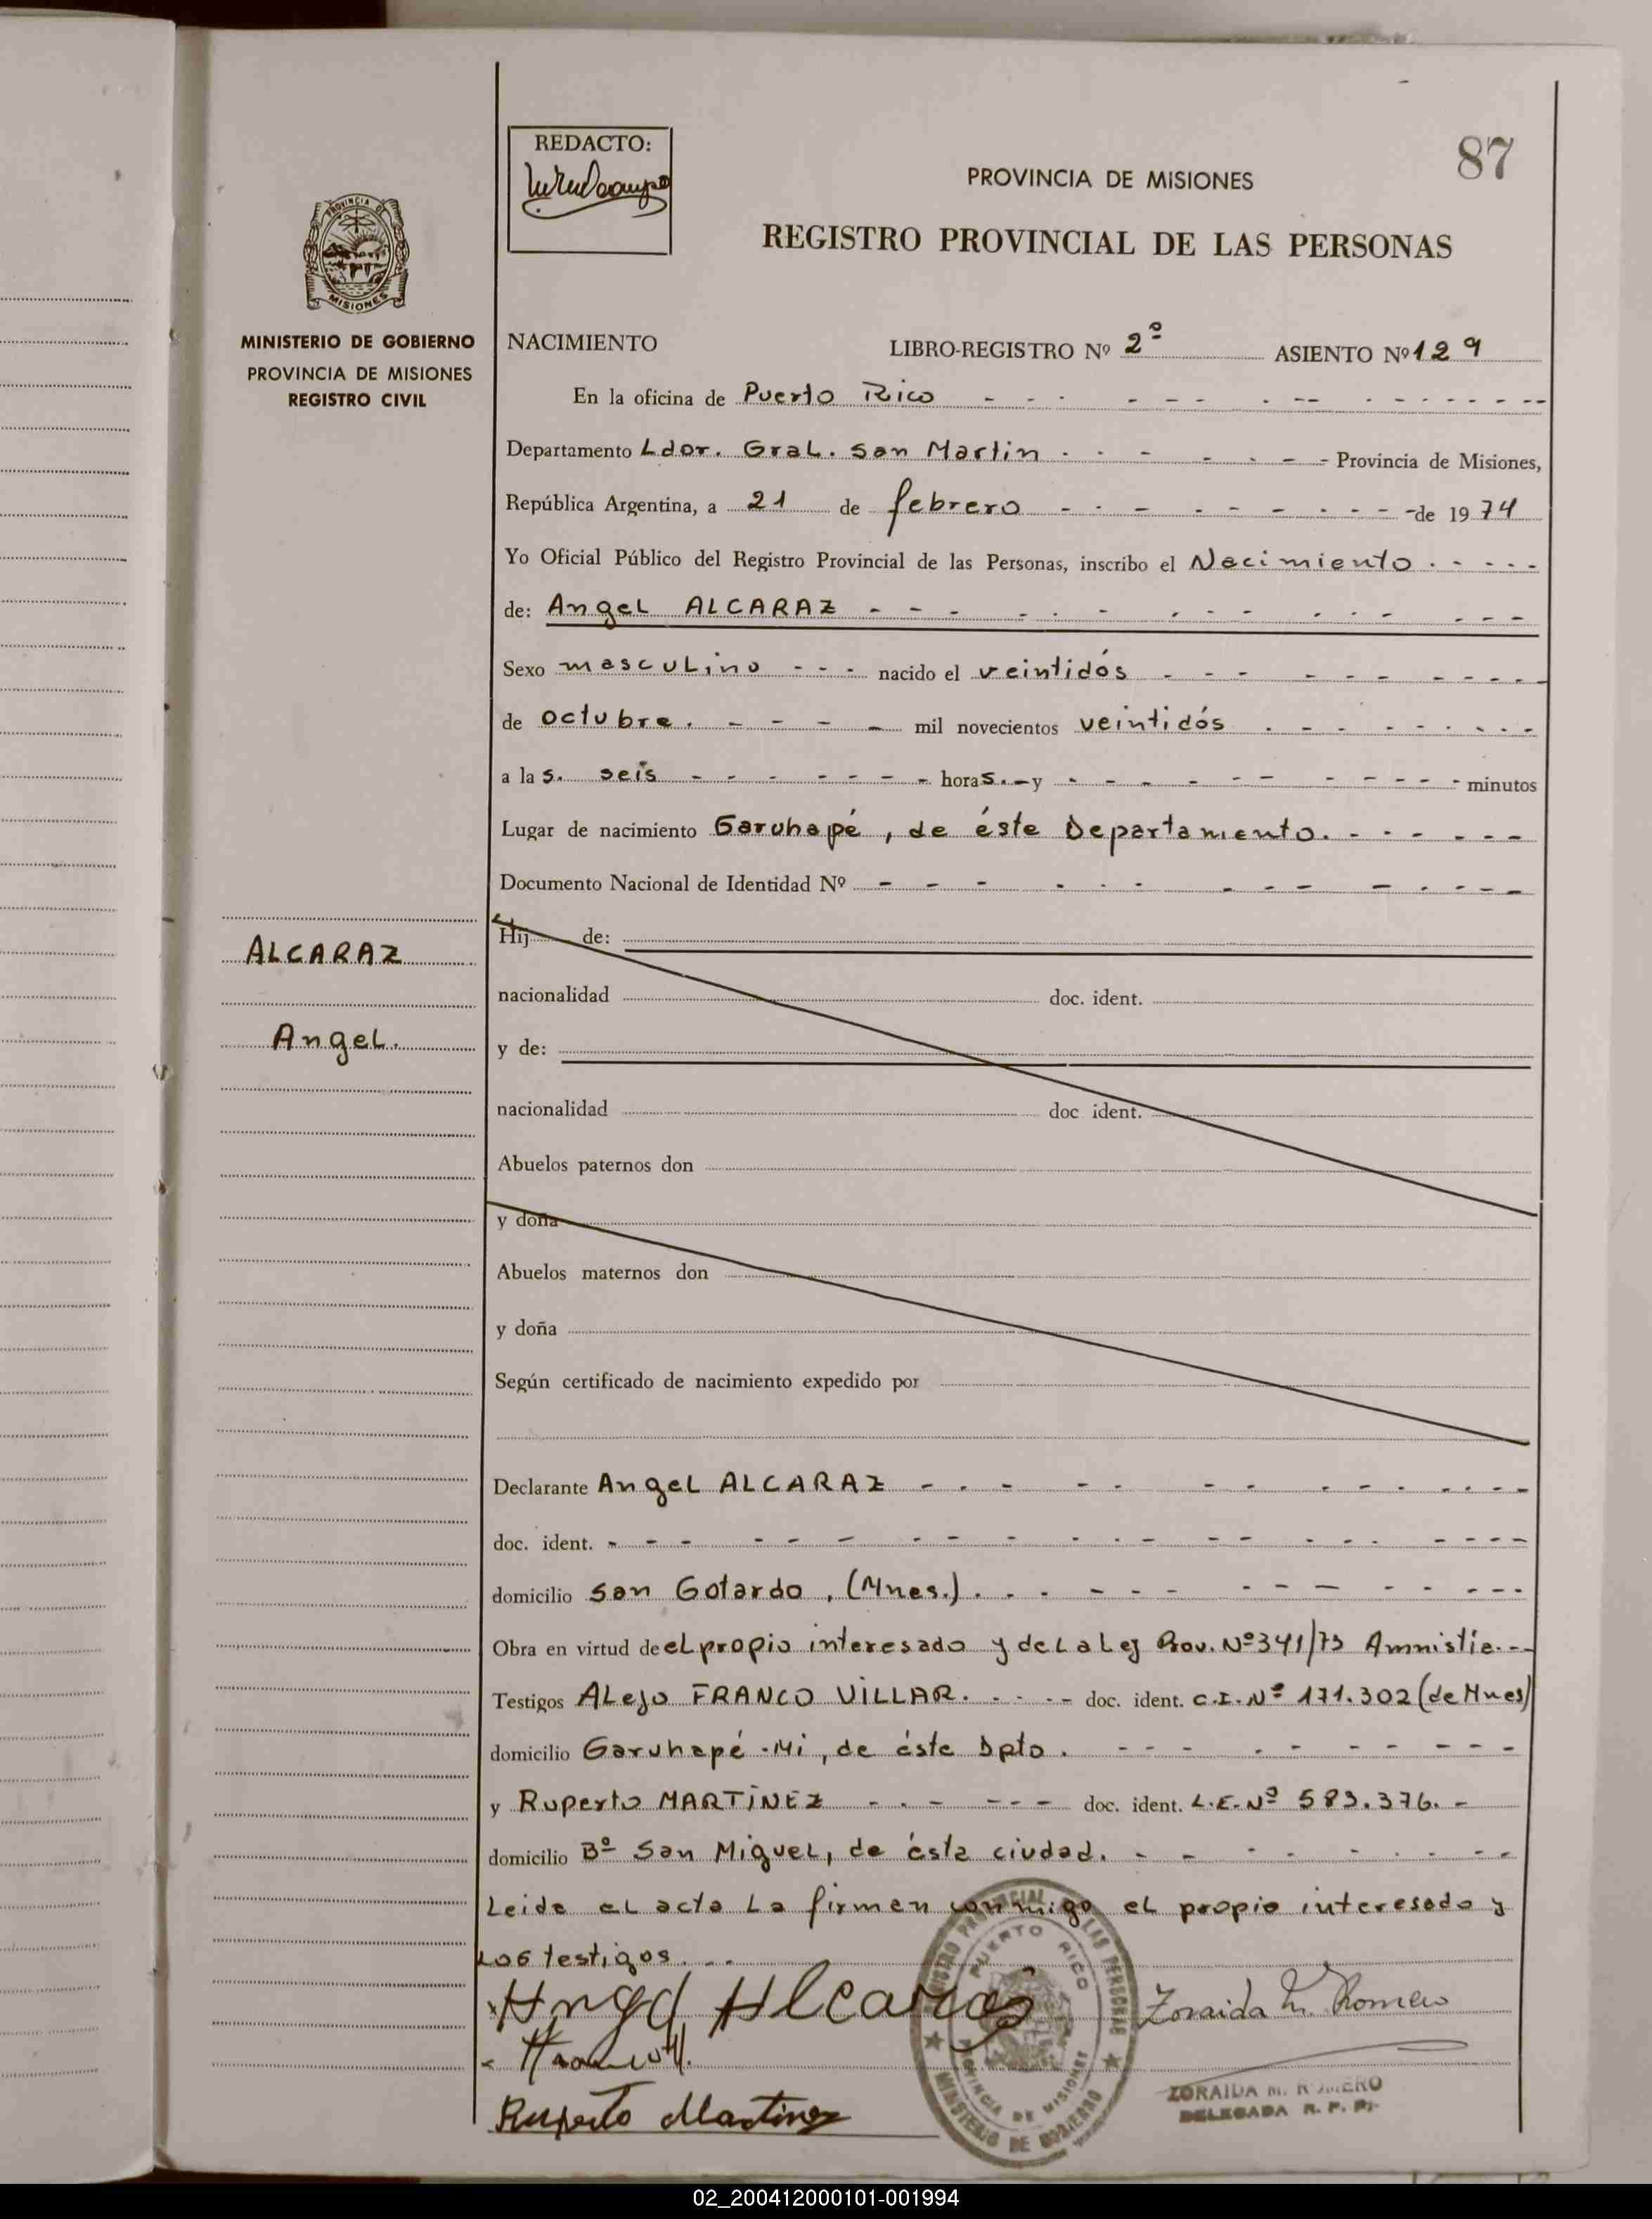 87
REDACTO:
PROVINCIA DE MISIONES
REGISTRO PROVINCIAL DE LAS PERSONAS
PROVINCIA DE
MISIONES
MINISTERIO DE GOBIERNO
PROVINCIA DE MISIONES
REGISTRO CIVIL
NACIMIENTO LIBRO-REGISTRO Nº 2º ASIENTO Nº 129
En la oficina de Puerto Rico
Departamento Ldor. Gral. San Martin - Provincia de Misiones,
República Argentina, a 21 de febrero - de 1974
Yo Oficial Público del Registro Provincial de las Personas, inscribo el Nacimiento
de: Angel ALCARAZ
Sexo masculino - - - nacido el veintidós
de octubre. - - - - mil novecientos veintidós
a las. seis - - - horas. - y - - - minutos
Lugar de nacimiento Garuhapé, de éste Departamento.
Documento Nacional de Identidad Nº
Hij de:
ALCARAZ
nacionalidad doc. ident.
Angel.
y de:
nacionalidad doc ident.
Abuelos paternos don
y doña
Abuelos maternos don
y doña
Según certificado de nacimiento expedido por
Declarante Angel ALCARAZ
doc. ident.
domicilio San Gotardo, (Mnes.).
Obra en virtud de el propio interesado y de la Ley Prov. Nº 341/73 Amnistía.
Testigos Alejo FRANCO VILLAR. - - - doc. ident. C.I. Nº 171.302 (de Mnes)
domicilio Garuhapé-Mi, de éste Dpto.
y Ruperto MARTÍNEZ - - - doc. ident. L.E. Nº 583.376. -
domicilio Bº San Miguel, de ésta ciudad.
Leida el acta la firman conmigo el propio interesado y
los testigos.
Angel Alcaraz
Zoraida M. Romero
Ruperto Martinez
REGISTRO PROVINCIAL DE LAS PERSONAS
PUERTO RICO
PROVINCIA DE MISIONES
MINISTERIO DE GOBIERNO
ZORAIDA M. ROMERO
DELEGADA R. P. P.
02_200412000101-001994